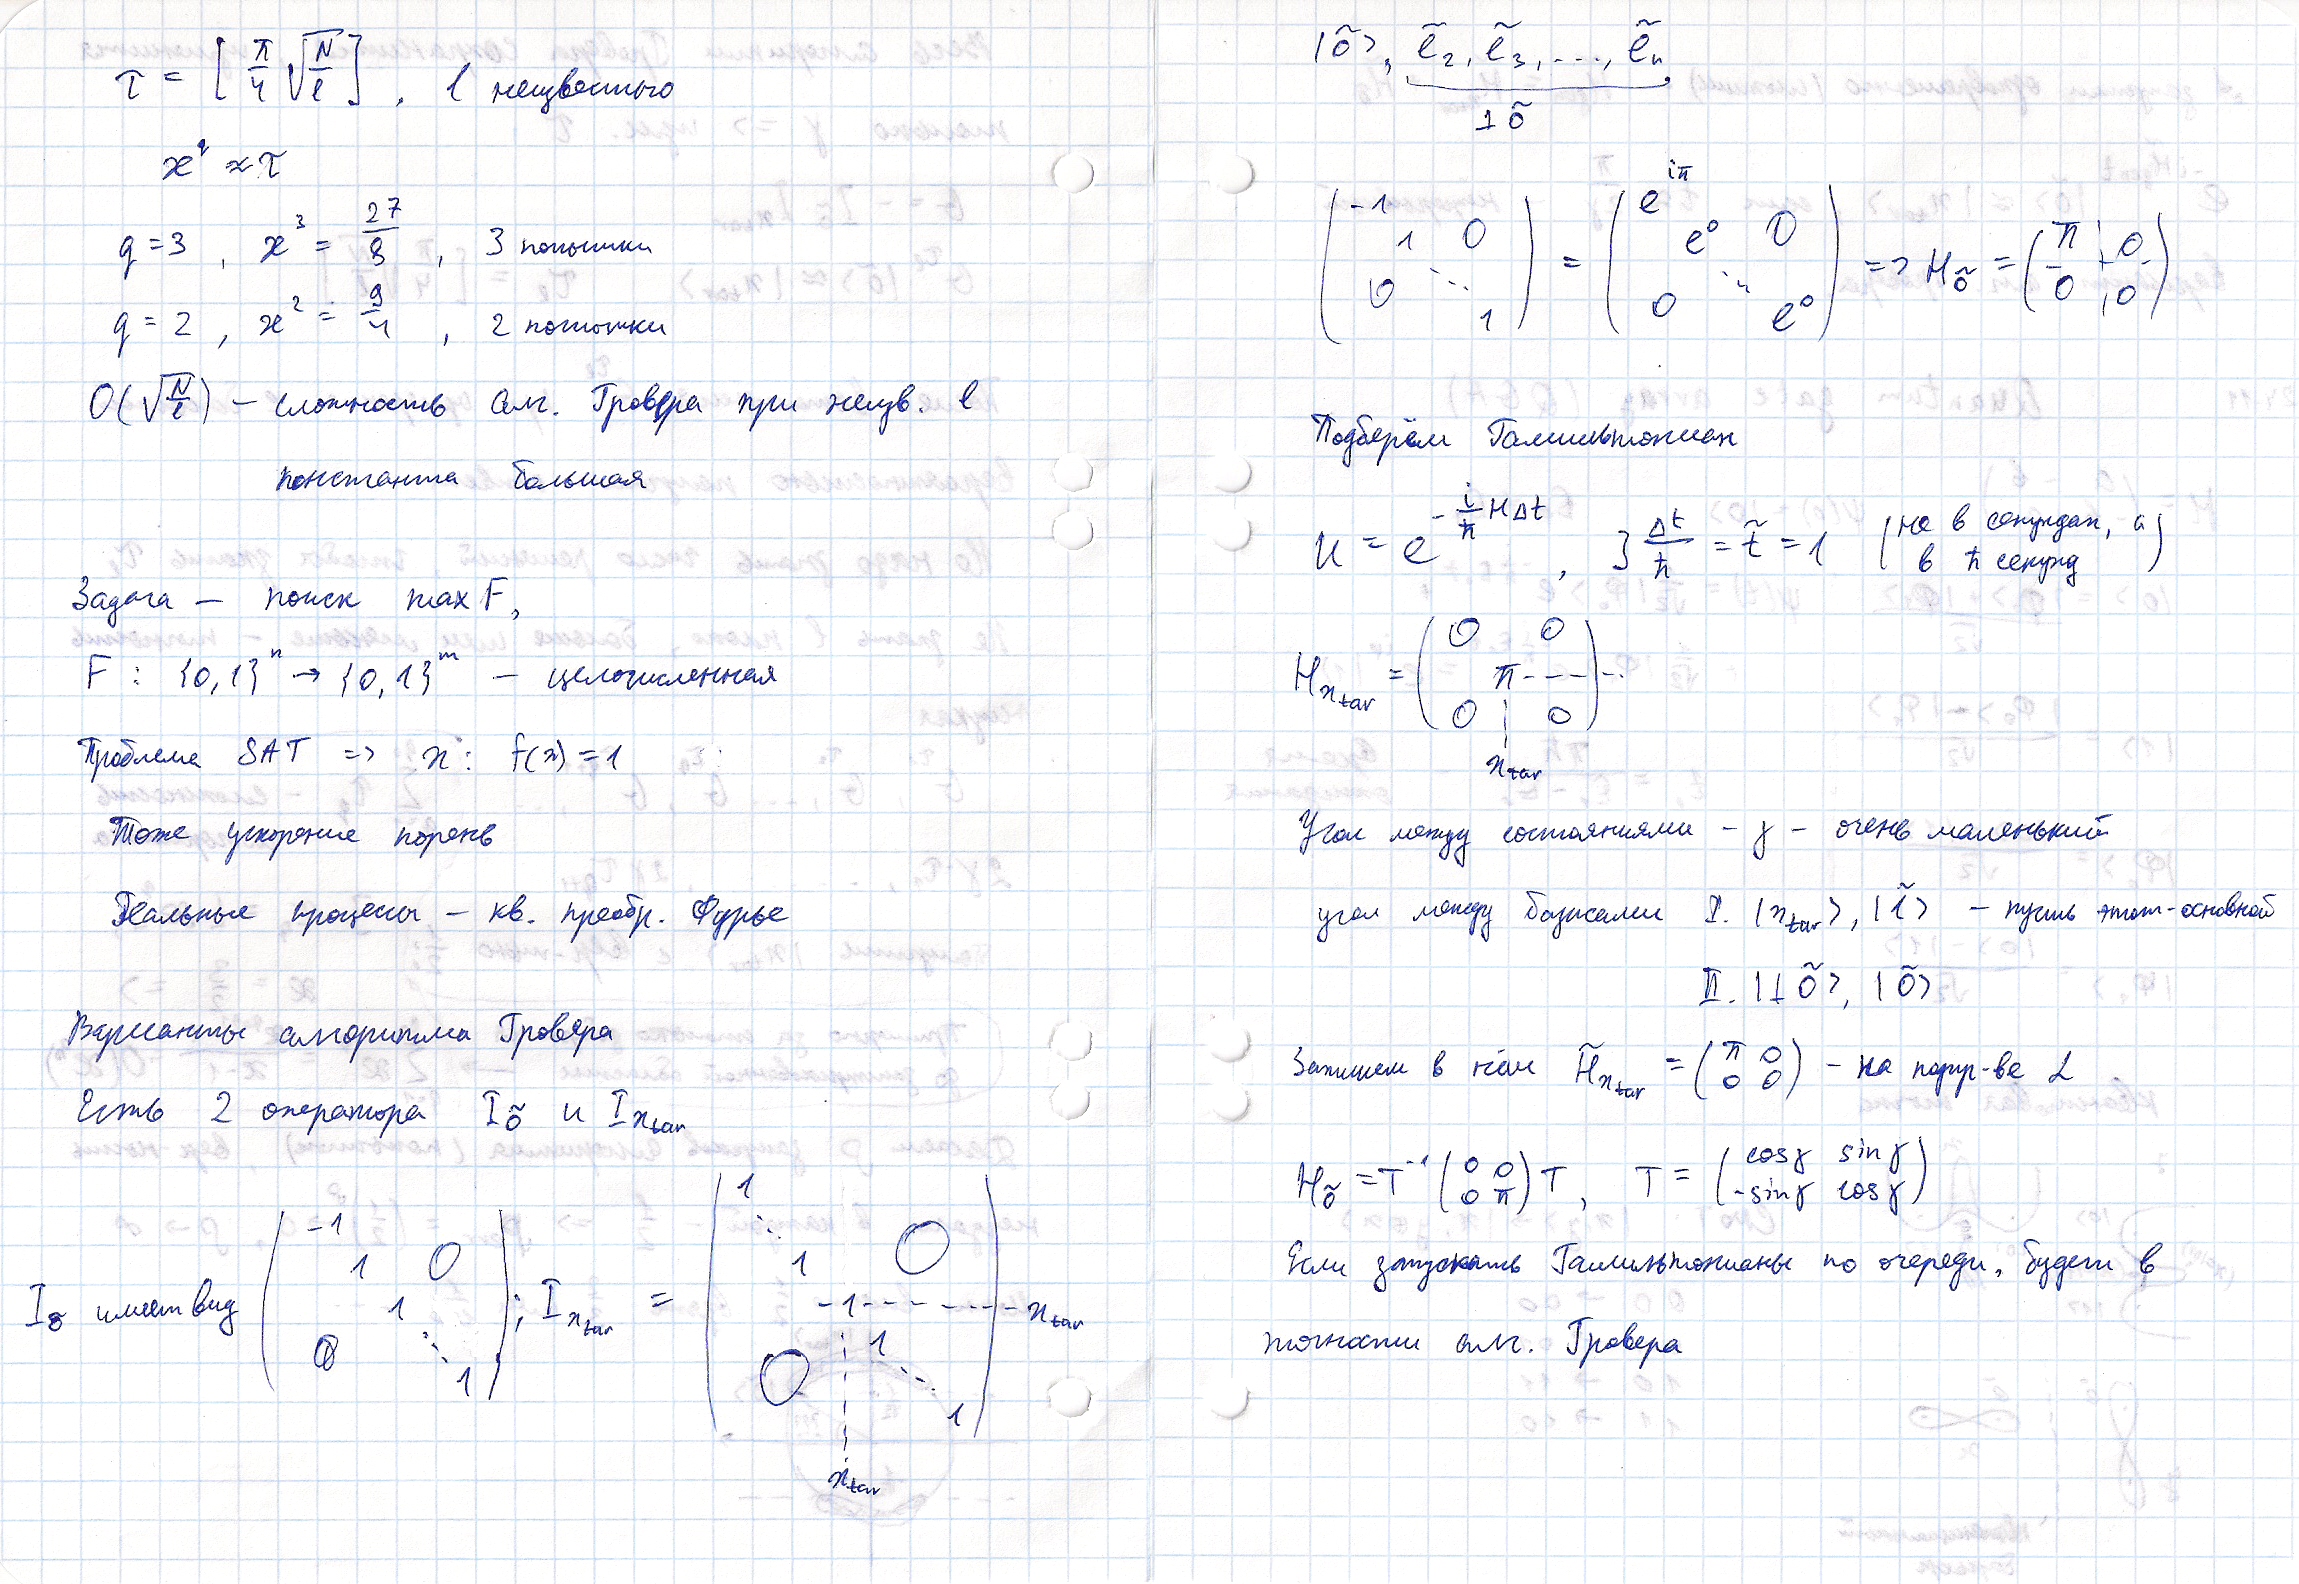 τ = [π/4 √(N/l)], l неизвестно
x^q ≈ τ
q = 3, x³ = 27/8, 3 попытки
q = 2, x² = 9/4, 2 попытки
O(√(N/l)) – сложность алг. Гровера при неизв. l
константа большая
Задача – поиск max F,
F : {0,1}ⁿ → {0,1}ᵐ – целочисленная
Проблема SAT => x : f(x) = 1
Тоже ускорение корень
Реальные процессы – кв. преобр. Фурье
Варианты алгоритма Гровера
Есть 2 оператора I_õ и I_x_tar
I_õ имеет вид (-1 1 1 ⋱ 1, 0, 0); I_x_tar = (1 ⋱ 1 -1 1 ⋱ 1, 0, 0) x_tar
x_tar
|õ>, ẽ₂, ẽ₃, ..., ẽₙ
⊥ õ
(-1 1 ⋱ 1, 0, 0) = (e^{iπ} e⁰ ⋱ e⁰, 0, 0) => H_õ = (π 0 0 0)
Подберём Гамильтониан
U = e^{-i/ħ HΔt}, ∃ Δt/ħ = t̃ = 1 (не в секундах, а в ħ секунд)
H_x_tar = (0 0 π 0 0)
x_tar
Угол между состояниями – γ – очень маленький
угол между базисами I. |x_tar>, |1̃> – пусть этот - основной
II. |⊥ õ>, |õ>
Запишем в нём H̃_x_tar = (π 0 0 0) – на подпр-ве L
H_õ = T⁻¹ (0 0 0 π) T, T = (cosγ sinγ -sinγ cosγ)
Если запускать Гамильтонианы по очереди, будет в
точности алг. Гровера